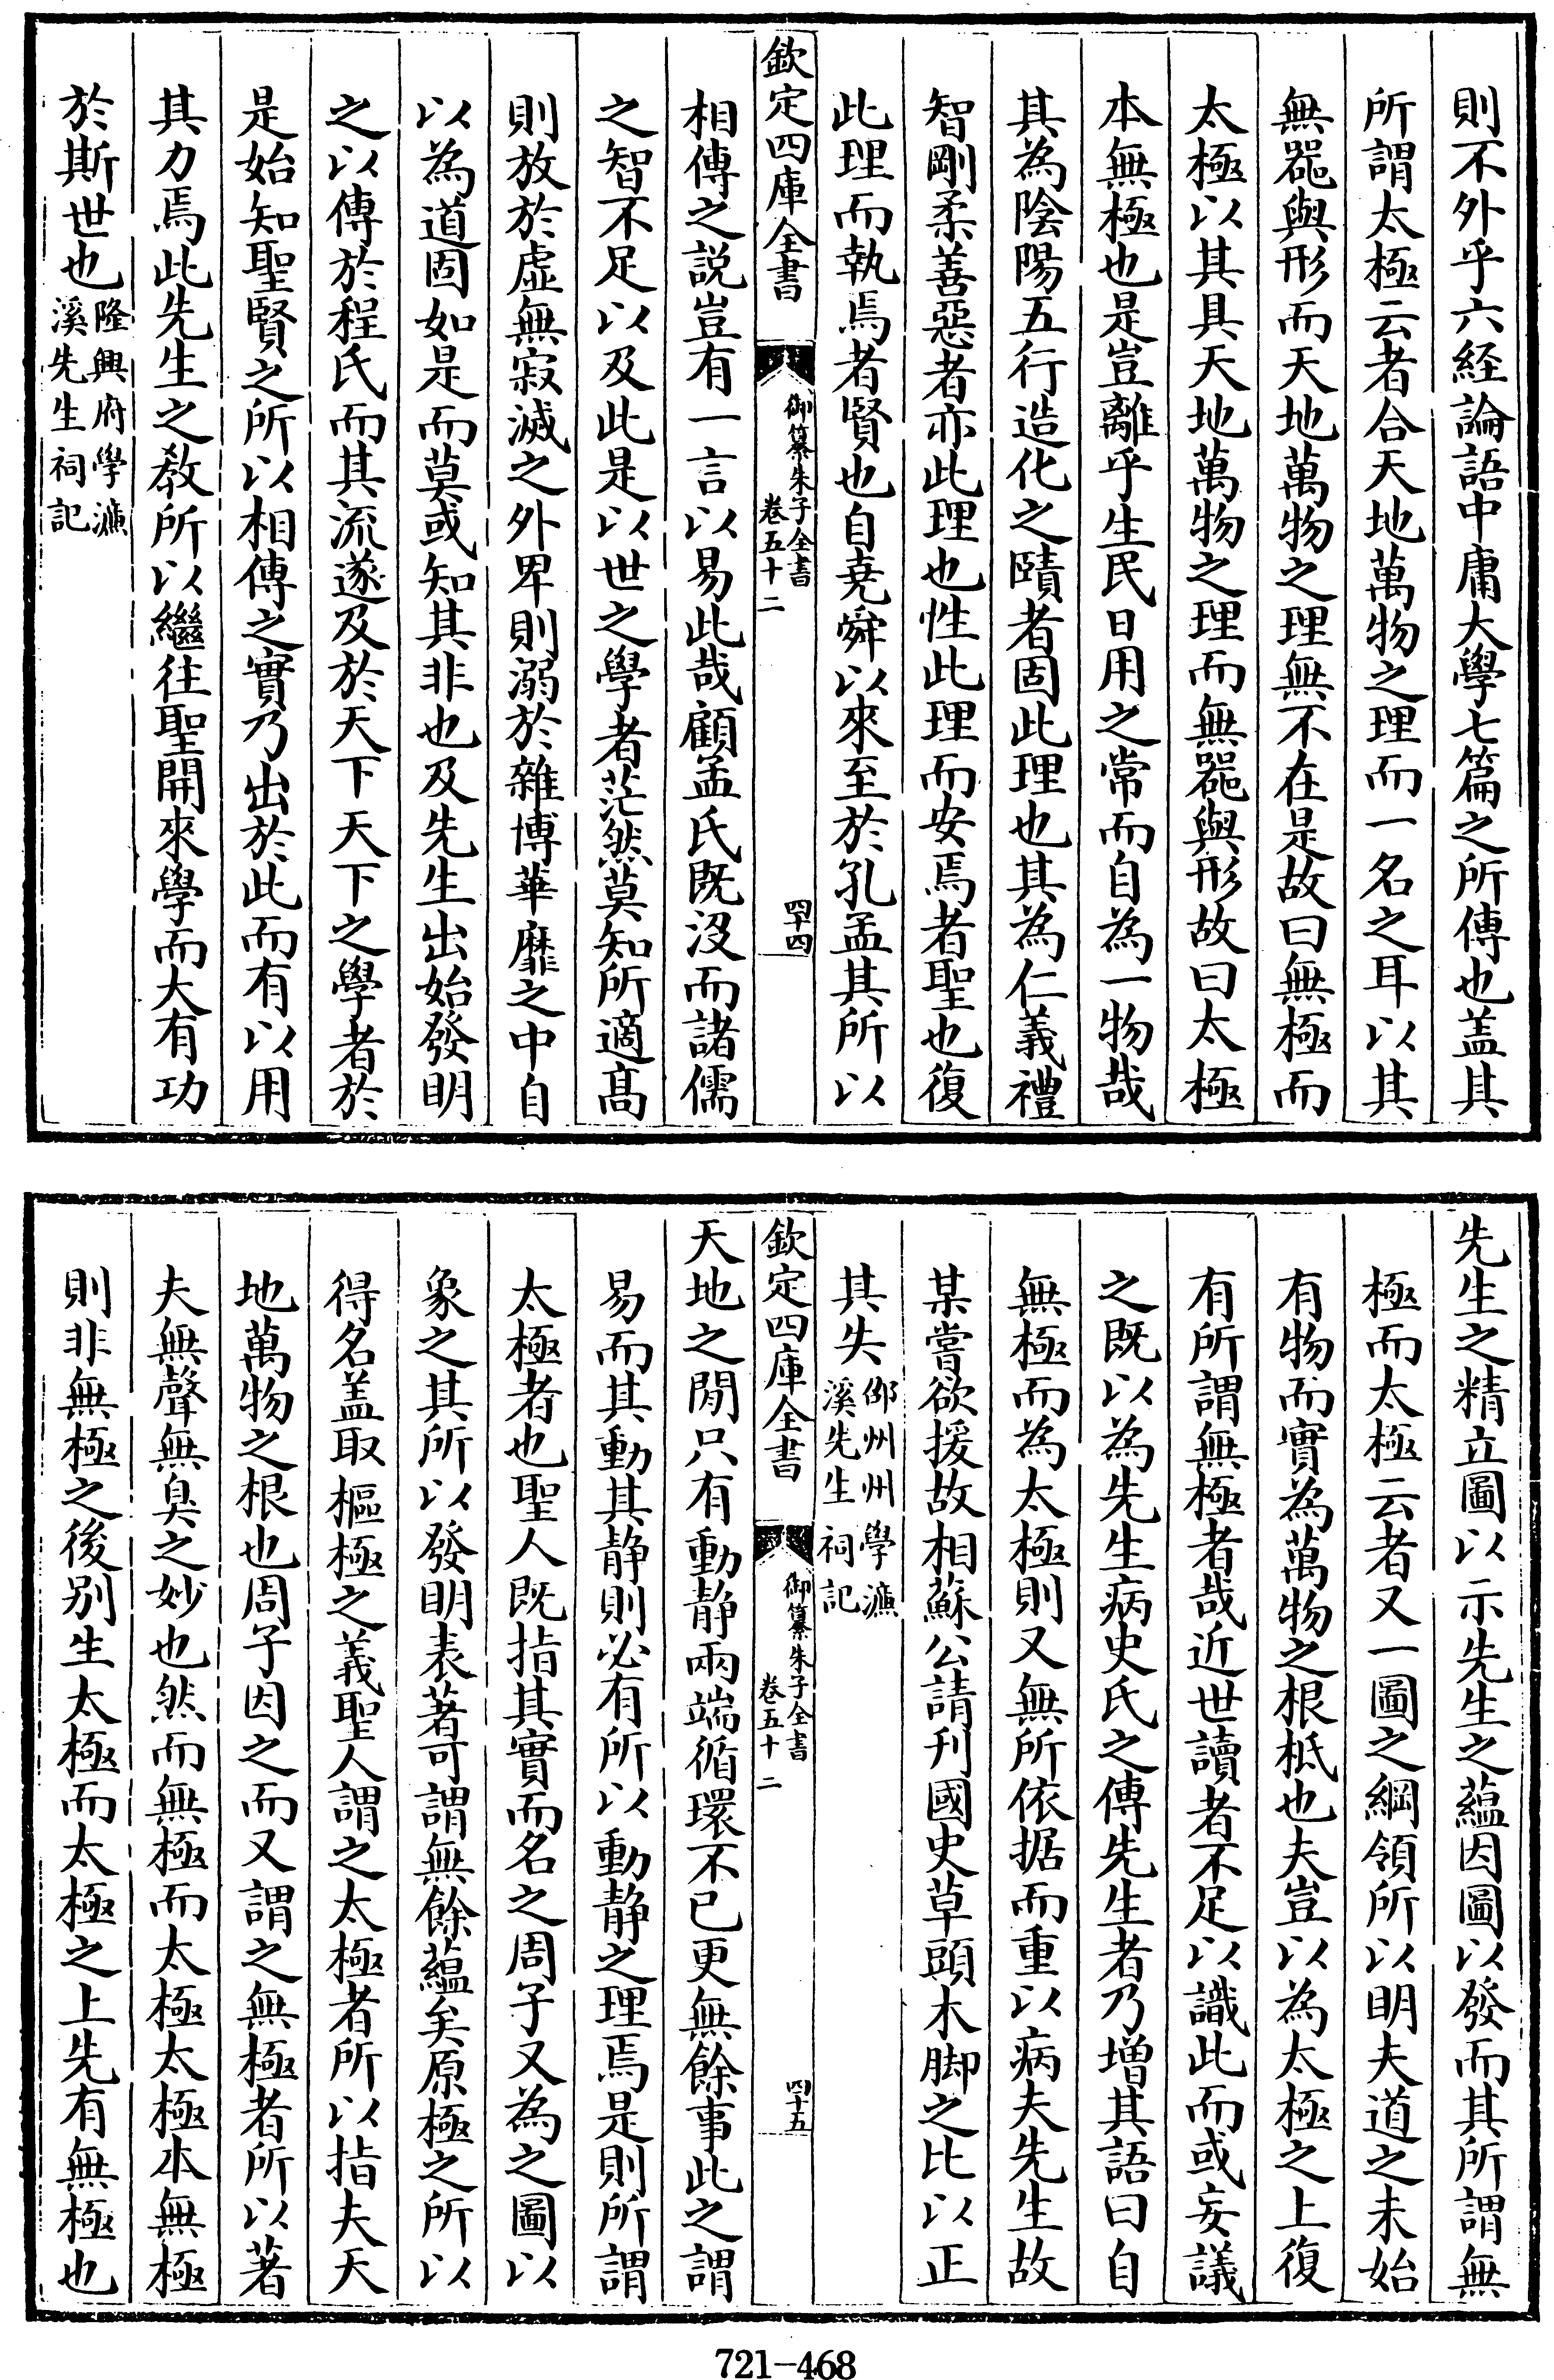 則不外乎六経論語中庸大學七篇之所傳也盖其
所謂太極云者合天地萬物之理而一名之耳以其
無噐與形而天地萬物之理無不在是故曰無極而
太極以其具天地萬物之理而無噐與形故曰太極
本無極也是豈離乎生民日用之常而自為一物哉
其為陰陽五行造化之賾者固此理也其為仁義禮
智剛柔善惡者亦此理也性此理而安焉者聖也復
此理而執焉者賢也自堯舜以來至於孔孟其所以
欽定四庫全書
御纂朱子全書
卷五十二
四十四
相傳之說豈有一言以易此哉顧孟氏既沒而諸儒
之智不足以及此是以世之學者茫然莫知所適髙
則放於虛無寂滅之外卑則溺於雜博華靡之中自
以為道固如是而莫或知其非也及先生出始發明
之以傳於程氏而其流遂及於天下天下之學者於
是始知聖賢之所以相傳之實乃出於此而有以用
其力焉此先生之教所以繼往聖開來學而大有功
於斯世也隆興府學濂
溪先生祠記
先生之精立圖以示先生之蘊因圖以發而其所謂無
極而太極云者又一圖之綱領所以明夫道之未始
有物而實為萬物之根柢也夫豈以為太極之上復
有所謂無極者哉近世讀者不足以識此而或妄議
之既以為先生病史氏之傳先生者乃增其語曰自
無極而為太極則又無所依据而重以病夫先生故
某嘗欲援故相蘇公請刊國史草頭木脚之比以正
其失邵州州學濂
溪先生祠記
欽定四庫全書
御纂朱子全書
卷五十二
四十五
天地之閒只有動静兩端循環不已更無餘事此之謂
易而其動其静則必有所以動静之理焉是則所謂
太極者也聖人既指其實而名之周子又為之圖以
象之其所以發明表著可謂無餘蘊矣原極之所以
得名盖取樞極之義聖人謂之太極者所以指夫天
地萬物之根也周子因之而又謂之無極者所以著
夫無聲無臭之妙也然而無極而太極太極本無極
則非無極之後别生太極而太極之上先有無極也
721-468